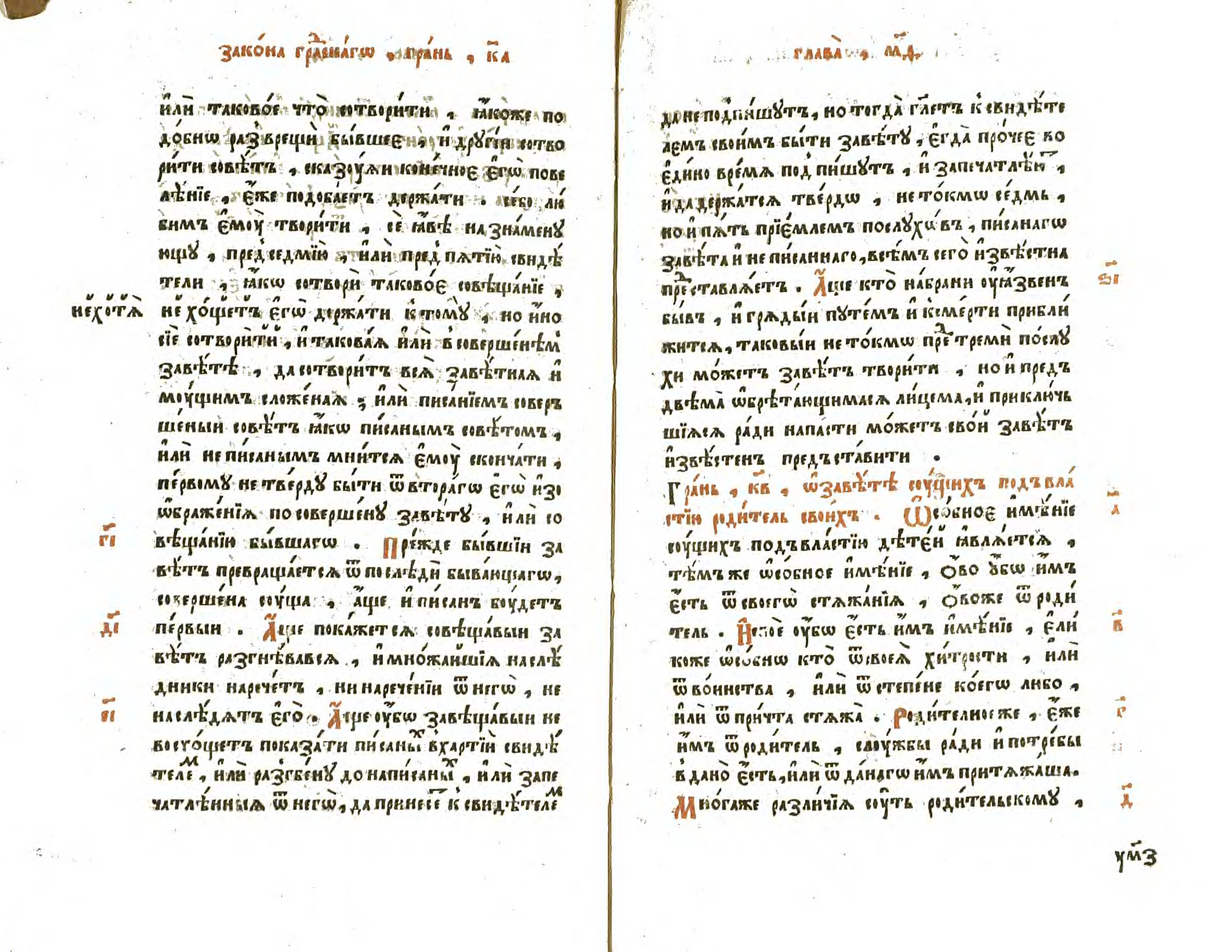 зако́на гра́дскагѡ , гра́нь , к҃а
и҆лѝ таково́е что̀ сотвори́ти , ꙗ҆́коже по
до́бнѡ разврещѝ бы́вшеє , и҆ дрꙋгі́и сотво
ри́ти совѣ́тъ , сказꙋ́ѧи коне́чноє є҆гѡ̀ пове
лѣ́нїе , є҆́же подоба́етъ держа́ти . се́бо лю
бимъ є҆мꙋ̀ твори́ти , сѐ ꙗ҆́вѣ назна́менꙋ
ющꙋ , председмїю , и҆лѝ предпѧтїю свидѣ
тели , ꙗ҆́кѡ сотворѝ таково́є совѣща́нїе ,
нехотѧ̀
не хо́щетъ є҆гѡ̀ держа́ти ктомꙋ̀ , но и҆но
сїе сотвори́ти , и҆ такова́ѧ и҆лѝ всоверше́нѣмъ
завѣ́тѣ , да сотвори́тъ всѧ̀ завѣ́тнаѧ и҆
мꙋ́щимъ сложе́наѧ ; и҆лѝ писа́нїемъ соверъ
ше́ный совѣ́тъ ꙗ҆́кѡ пи́санымъ совѣ́томъ ,
и҆лѝ не пи́санымъ мни́тсѧ є҆мꙋ̀ сконча́ти ,
пе́рвомꙋ не тве́рдꙋ бы́ти ѿ вторагѡ є҆гѡ̀ и҆зо
ѡ҆браже́нїѧ по соверше́нꙋ завѣ́тꙋ , и҆лѝ со
г҃і
вѣща́нїю бы́вшагѡ . Пре́жде бы́вшїи за
вѣ́тъ превраща́етсѧ ѿ послѣдѝ быва́ющагѡ,
соверше́на сꙋ́ща , а҆́ще и҆ пи́санъ бꙋ́детъ
д҃і
пе́рвыи . А҆́ще пока́жетсѧ совѣща́выи за
вѣ́тъ разгнѣ́васѧ , и҆ мно́жаишїѧ наслѣ
дники нарече́тъ , ни нарече́нїи ѿ негѡ̀ , не
є҃і
наслѣ́дѧтъ є҆го̀ . А҆́ще ᲂу҆бѡ завѣща́выи не
восхо́щетъ показа́ти пи́саных вхарті́и свидѣ́
телем , и҆лѝ разгбе́нꙋ до написаных , и҆лѝ запе
чатлѣ́нныѧ ѿ негѡ̀, да принесе́ к свидѣ́телем
глава̀ , м҃д
да не подпи́шꙋтъ, но тогда̀ гл҃етъ к свидѣ́те
лемъ свои́мъ бы́ти завѣ́тꙋ , є҆гда̀ про́чеє во
є҆ди́но вре́мѧ подпи́шꙋтъ , и҆ запечатлѣ́ю ,
и҆ да держа́тсѧ тве́рдѡ , не то́кмѡ се́дмь ,
но и҆ пѧ́ть прїе́млемъ послꙋ́хѡвъ , пи́санагѡ
завѣ́та и҆ не пи́саннаго, всѣ́мъ сего̀ и҆звѣ́стна
ѕ҃і
представлѧ́етъ . А҆́ще кто̀ на бра́ни ᲂу҆ѧ́звенъ
бы́въ , и҆ грѧды́и пꙋте́мъ и҆ к сме́рти прибли́
жи́тсѧ, таковы́и не то́кмѡ пред тремѝ послꙋ́
хи мо́жетъ завѣ́тъ твори́ти , но и҆ предъ
двѣма̀ ѡ҆брѣта́ющимасѧ лице́ма, и҆ приклю́чь
шїѧсѧ ра́ди напа́сти мо́жетъ сво́й завѣ́тъ
и҆звѣ́стенъ предъста́вити .
Гра́нь , к҃в , ѡ҆ завѣ́тѣ сꙋ́щихъ подъ вла́
а҃
стїю роди́тель свои́хъ . Ѡ҆со́бноє и҆мѣ́нїе
сꙋ́щихъ подъ вла́стїю дѣте́й ꙗ҆влѧ́етсѧ ,
тѣ́мъ же ѡ҆со́бное и҆мѣ́нїе , ѻ҆́во ᲂу҆́бѡ и҆́мъ
є҆́сть ѿ своегѡ̀ стѧжа́нїѧ , ѻ҆́воже ѿ роди́
в҃
тель . И҆́ное ᲂу҆́бѡ є҆́сть и҆́мъ и҆мѣ́нїе , є҆ли́
коже ѡ҆со́бнѡ кто̀ ѿ своеѧ̀ хи́трости , и҆лѝ
ѿ во́инства , и҆лѝ ѿ степе́не ко́егѡ либо ,
г҃
и҆лѝ ѿ при́чта стѧжа̀ . Роди́телноеже , є҆́же
и҆́мъ ѿ роди́тель , слꙋ́жбы ра́ди и҆ потре́бы
вдано̀ є҆́сть, и҆лѝ ѿ да́нагѡ и҆́мъ притѧжа́ша.
д҃
Мно́гаже разли́чїѧ сꙋ́ть роди́тельскомꙋ ,
ум҃з